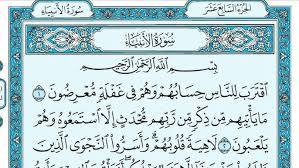 الجزء السابع عشر
سورة الأنبياء
سورة الأنبياء
بسم الله الرحمن الرحيم
اقترب للناس حسابهم وهم في غفلة معرضون ١
ما يأتيهم من ذكر من ربهم محدث إلا استمعوه وهم
يلعبون ٢ لاهية قلوبهم وأسروا النجوى الذين